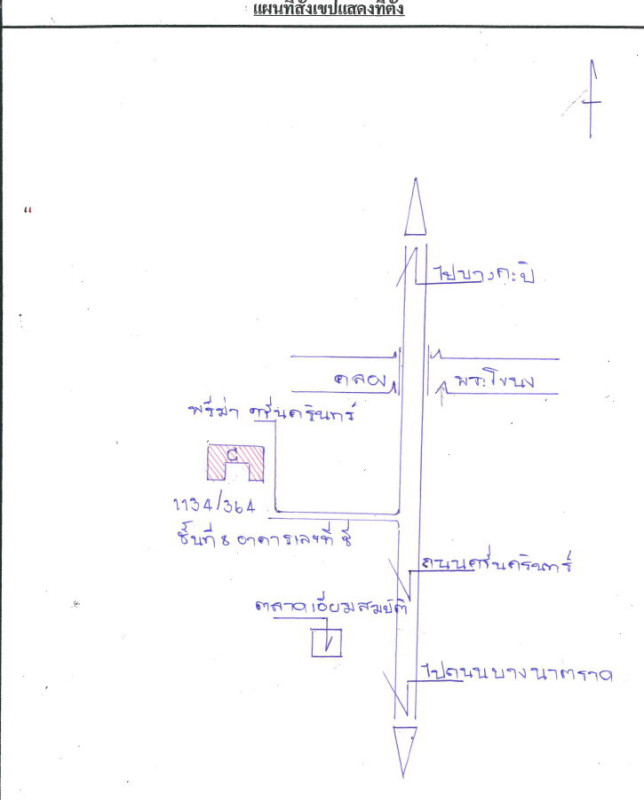 แผนที่สังเขปแสดงที่ตั้ง
ไปบางกะปิ
คลอง พระโขนง
พรีม่า ศรีนครินทร์
C
1134/364
ชั้นที่ 8 อาคารเลขที่ ซี
ถนนศรีนครินทร์
ตลาดเอี่ยมสมบัติ
ไปถนนบางนาตราด